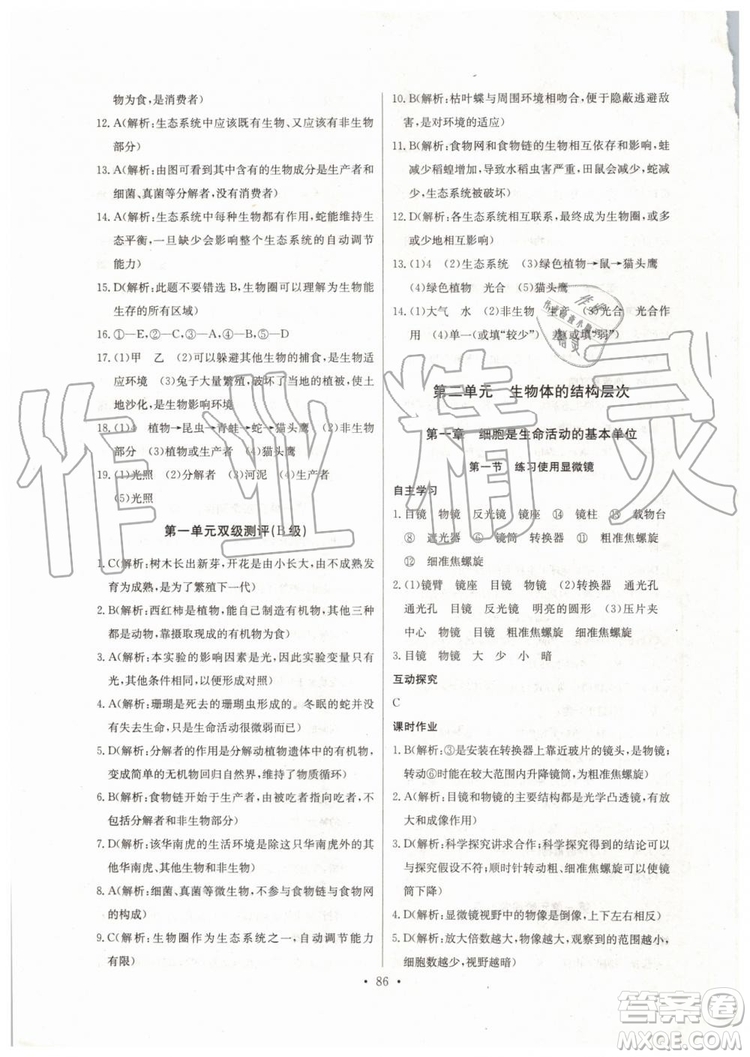 物为食,是消费者)
12. A(解析:生态系统中应该既有生物、又应该有非生物
部分)
13. A(解析:由图可看到其中含有的生物成分是生产者和
细菌、真菌等分解者,没有消费者)
14. A(解析:生态系统中每种生物都有作用,蛇能维持生
态平衡,一旦缺少会影响整个生态系统的自动调节
能力)
15. D(解析:此题不要误选 B,生物圈可以理解为生物能
生存的所有区域)
16. ①—E、②—A、③—C、④—B、⑤—D
17. (1)甲 乙 (2)可以躲避其他生物的捕食,是生物适
应环境 (3)兔子大量繁殖,破坏了植被,使土
地沙化,是生物影响环境
18. (1)4 植物→昆虫→青蛙→蛇→猫头鹰
(2)植物 (3)植物或生产者 (4)猫头鹰
19. (1)光照 (2)分解者 (3)河流 (4)生产者
(5)光照
第一单元双级测评(B级)
1. C(解析:树木长出新芽,开花是由小长大,由不成熟发
育为成熟,是为了繁殖下一代)
2. B(解析:西红柿是植物,能自己制造有机物,其他三种
都是动物,靠摄取现成的有机物为食)
3. A(解析:本实验的影响因素是光,因此实验变量只有
光,其他条件相同,以便形成对照)
4. A(解析:珊瑚是死去的珊瑚虫形成的,冬眠的蛇并没
有失去生命,只是生命活动很微弱而已)
5. D(解析:分解者的作用是分解动植物遗体中的有机物,
变成简单的无机物回归自然,供植物再利用)
6. B(解析:食物链开始于生产者,由被吃者指向吃者,不
包括分解者和非生物部分)
7. D(解析:该华南虎的生活环境是除这只华南虎以外的
其他华南虎、其他生物和非生物)
8. A(解析:细菌、真菌等微生物,不参与食物链与食物网
的构成)
9. C(解析:生物圈作为生态系统之一,自动调节能力
有限)
10. B(解析:枯叶蝶与周围环境相吻合,便于隐蔽逃避敌
害,是对环境的适应)
11. B(解析:食物网和食物链的生物相互依存和影响,蛙
减少稻蝗增加,导致水稻虫害严重,田鼠会减少,蛇减
少,生态系统被破坏)
12. D(解析:各生态系统相互联系,最终成为生物圈,或大
或小地产生影响)
13. (1)4 (2)生态系统 (3)绿色植物→鼠→猫头鹰
(4)绿色植物 光合 (5)猫头鹰
14. (1)大气 水 (2)非生物 生产者 (3)光合 光合作
用 (4)单一(或填“较少”) 差(或填“弱”)
第二单元 生物体的结构层次
第一章 细胞是生命活动的基本单位
第一节 练习使用显微镜
自主学习
1. 目镜 物镜 反光镜 镜座 ④ 镜柱 ⑥ 载物台
⑧ 遮光器 ⑨ 镜筒 转换器 ⑪ 粗准焦螺旋
⑫ 细准焦螺旋
2. (1)镜臂 镜座 目镜 (2)转换器 通光孔
通光孔 目镜 反光镜 明亮的圆形 (3)压片夹
中心 物镜 目镜 粗准焦螺旋 细准焦螺旋
3. 目镜 物镜 大 少 小 暗
互动探究
C
课时作业
1. B(解析:③是安装在转换器上靠近玻片的镜头,是物镜;
转动⑥时能在较大范围内升降镜筒,为粗准焦螺旋)
2. A(解析:目镜和物镜的主要结构都是光学凸透镜,有放
大和成像作用)
3. D(解析:科学探究讲求合作;科学探究得到的结论可以
与探究假设不符;顺时针转动粗、细准焦螺旋,镜筒
下降)
4. D(解析:显微镜视野中的物像是倒像,上下、左右相反)
5. D(解析:放大倍数越大,物像越大,观察到的范围越小,
细胞数越少,视野越暗)
· 86 ·
作业精灵
答案圈
MXQE.COM